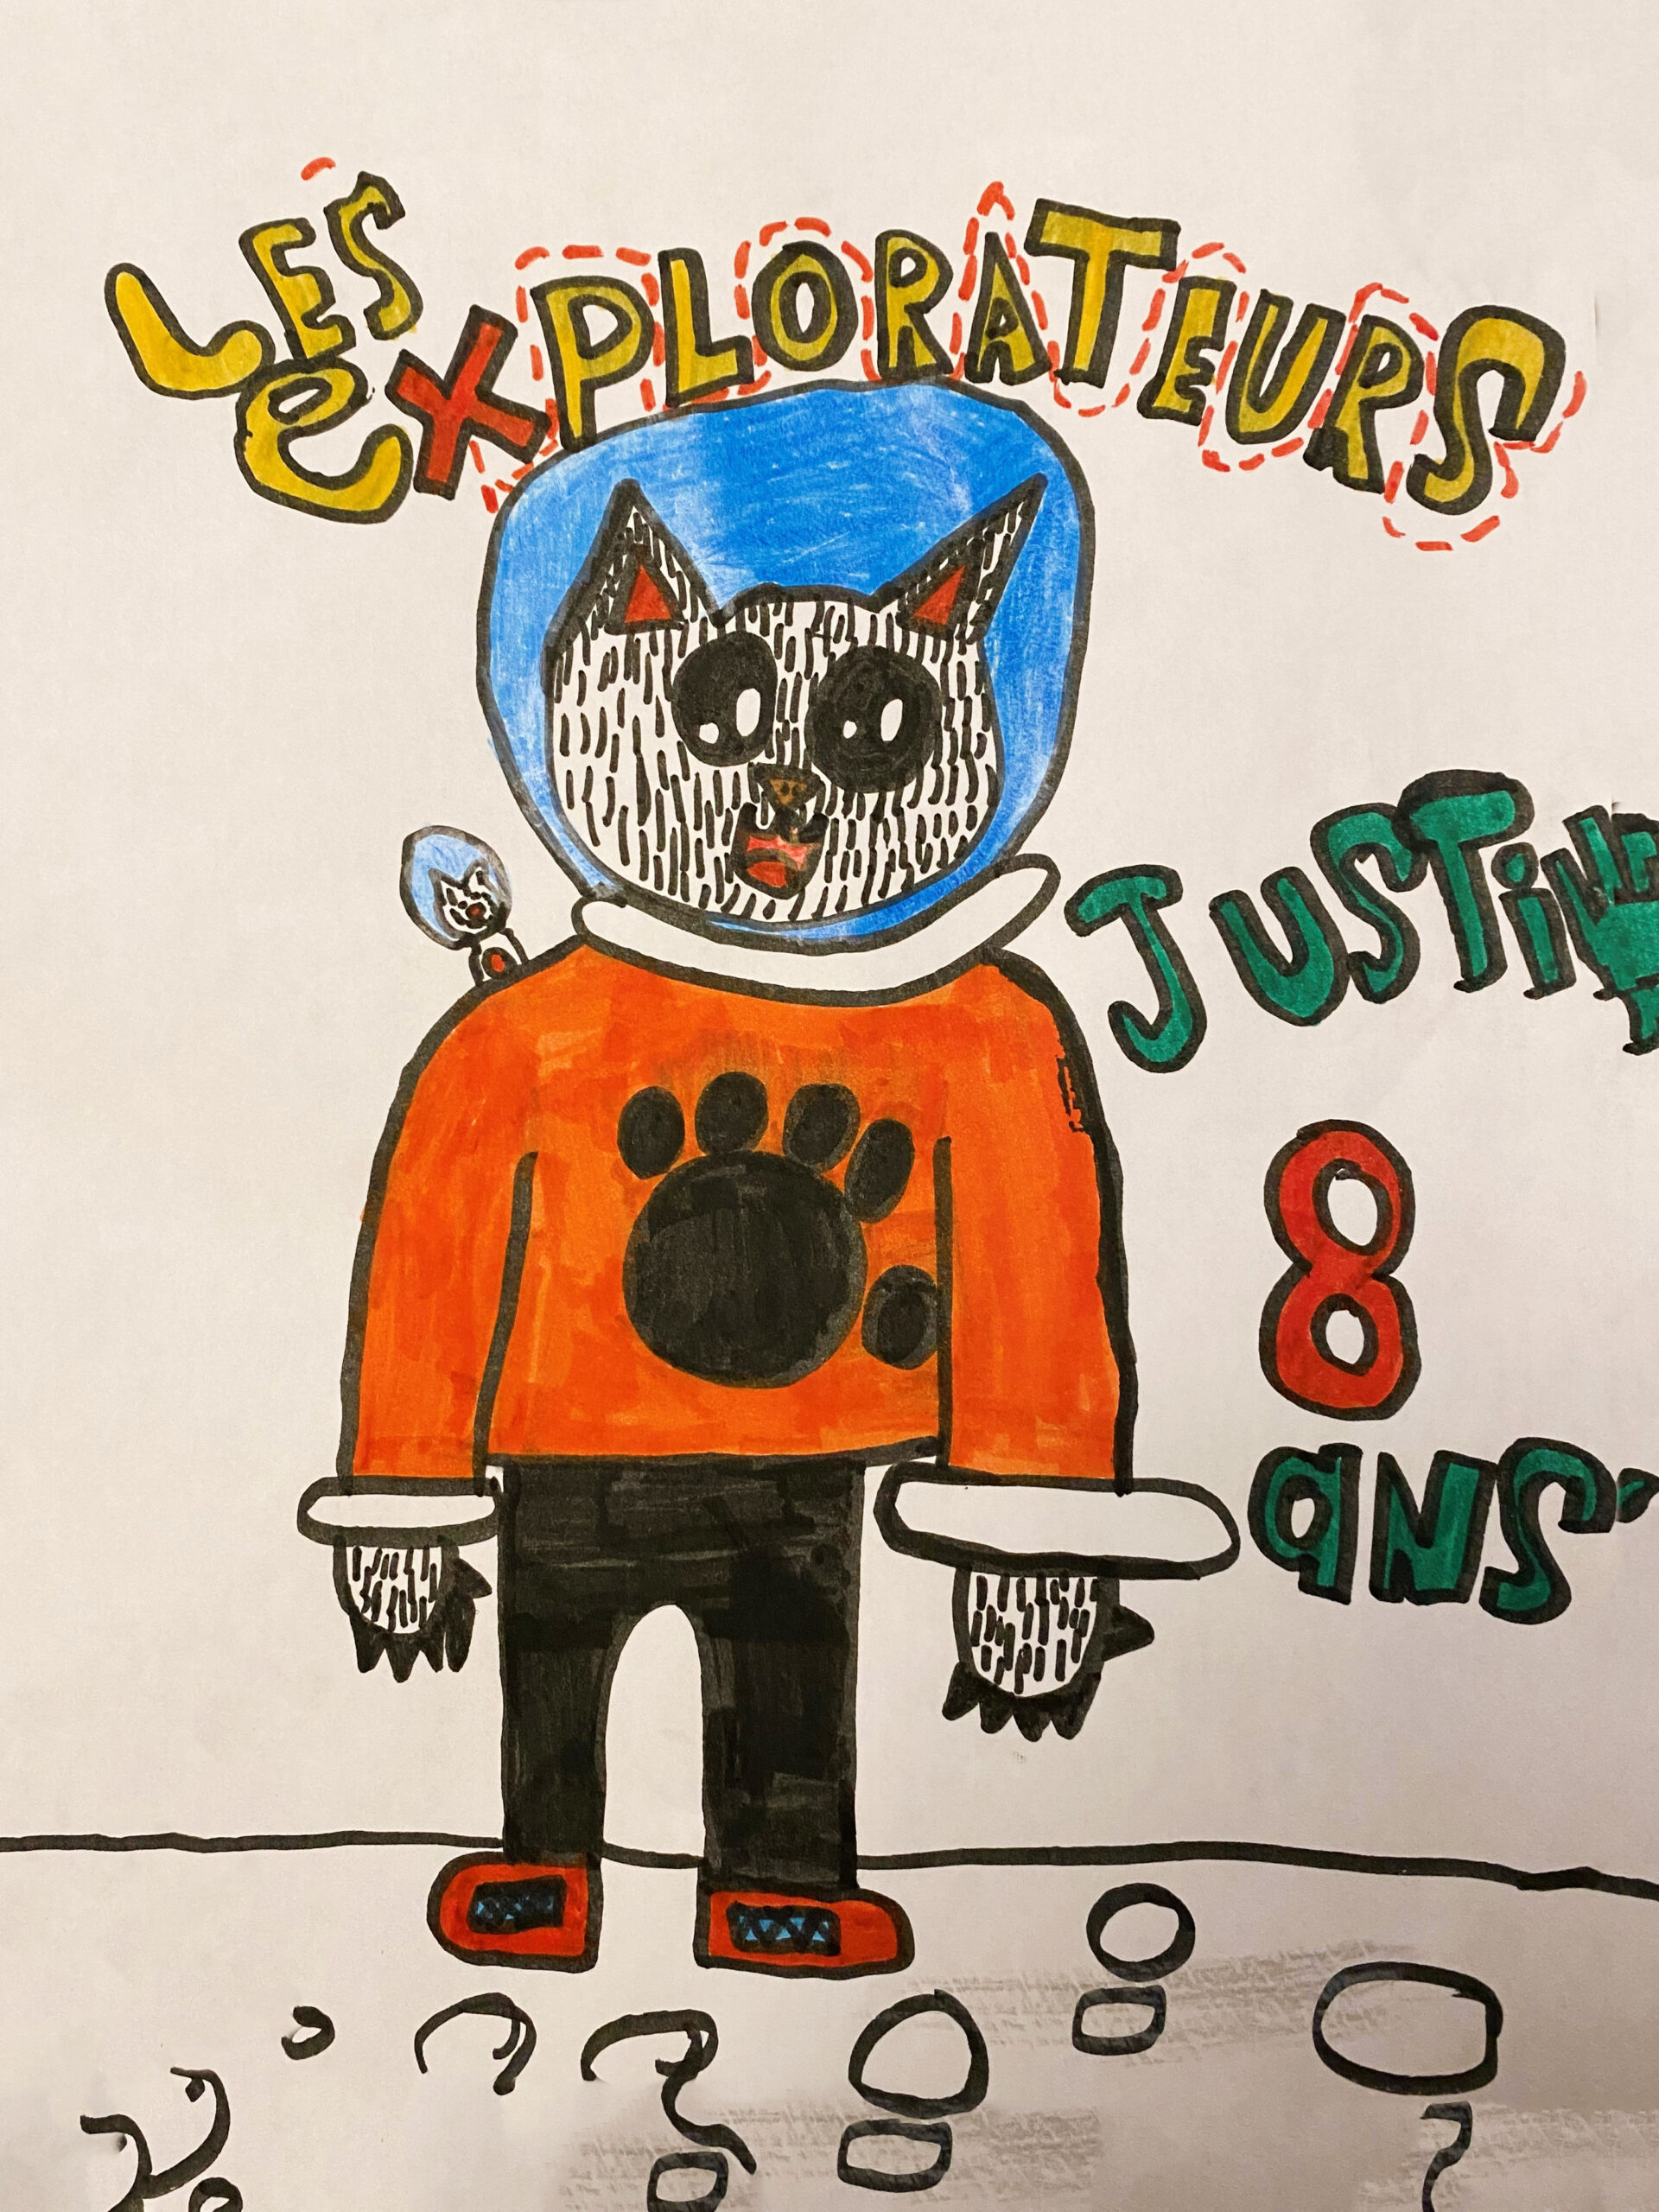 LES
eXPLORATEURS
JUSTiNE
8
aNS